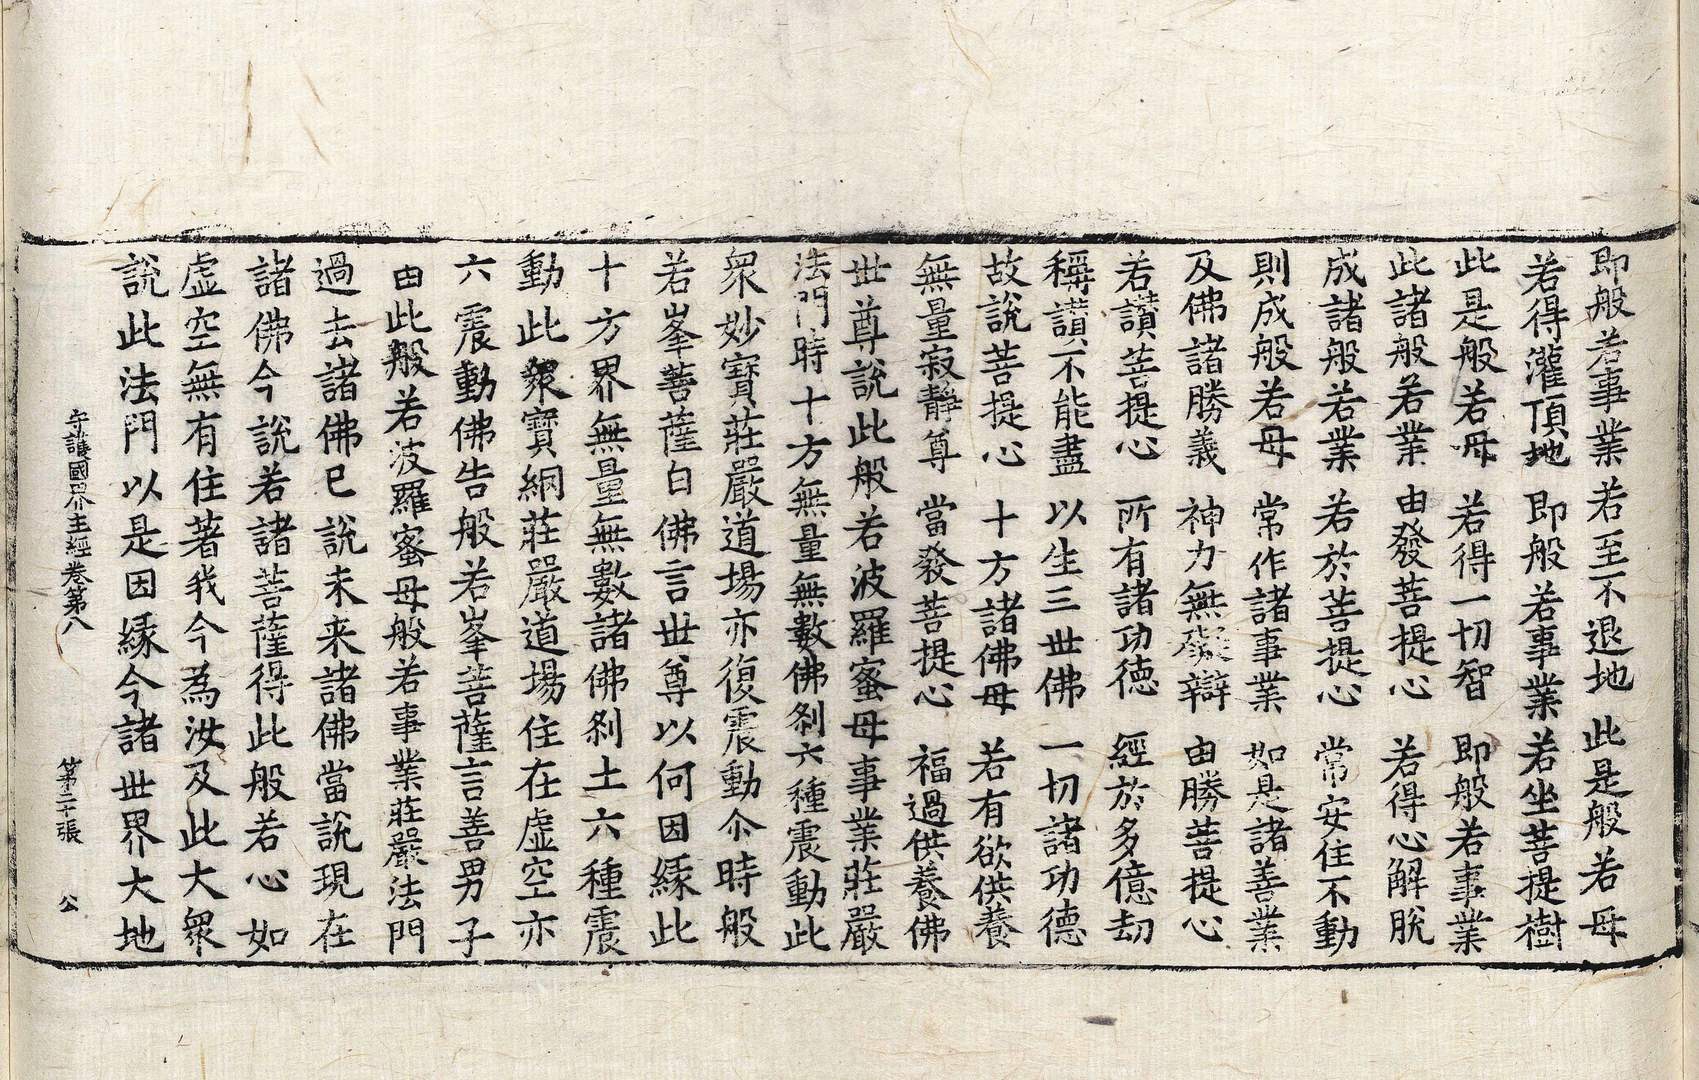 即般若事業若至不退地 此是般若母
若得灌頂地 即般若事業若坐菩提樹
此是般若母 若得一切智 即般若事業
此諸般若業 由發菩提心 若得心解脫
成諸般若業 若於菩提心 常安住不動
則成般若母 常作諸事業 如是諸善業
及佛諸勝義 神力無礙辯 由勝菩提心
若讚菩提心 所有諸功德 經於多億劫
稱讚不能盡 以生三世佛 一切諸功德
故說菩提心 十方諸佛母 若有欲供養
無量寂靜尊 當發菩提心 福過供養佛
世尊說此般若波羅蜜母事業莊嚴
法門時十方無量無數佛刹六種震動此
衆妙寶莊嚴道場亦復震動尒時般
若峯菩薩白佛言世尊以何因緣此
十方界無量無數諸佛刹土六種震
動此衆寶網莊嚴道場住在虛空亦
六震動佛告般若峯菩薩言善男子
由此般若波羅蜜母般若事業莊嚴法門
過去諸佛已說未来諸佛當說現在
諸佛今說若諸菩薩得此般若心 如
虛空無有住著我今為汝及此大衆
說此法門以是因緣今諸世界大地
守護國界主經卷第八 第二十張 公